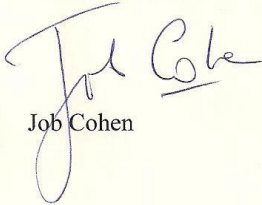 Job Cohen
Job Cohen